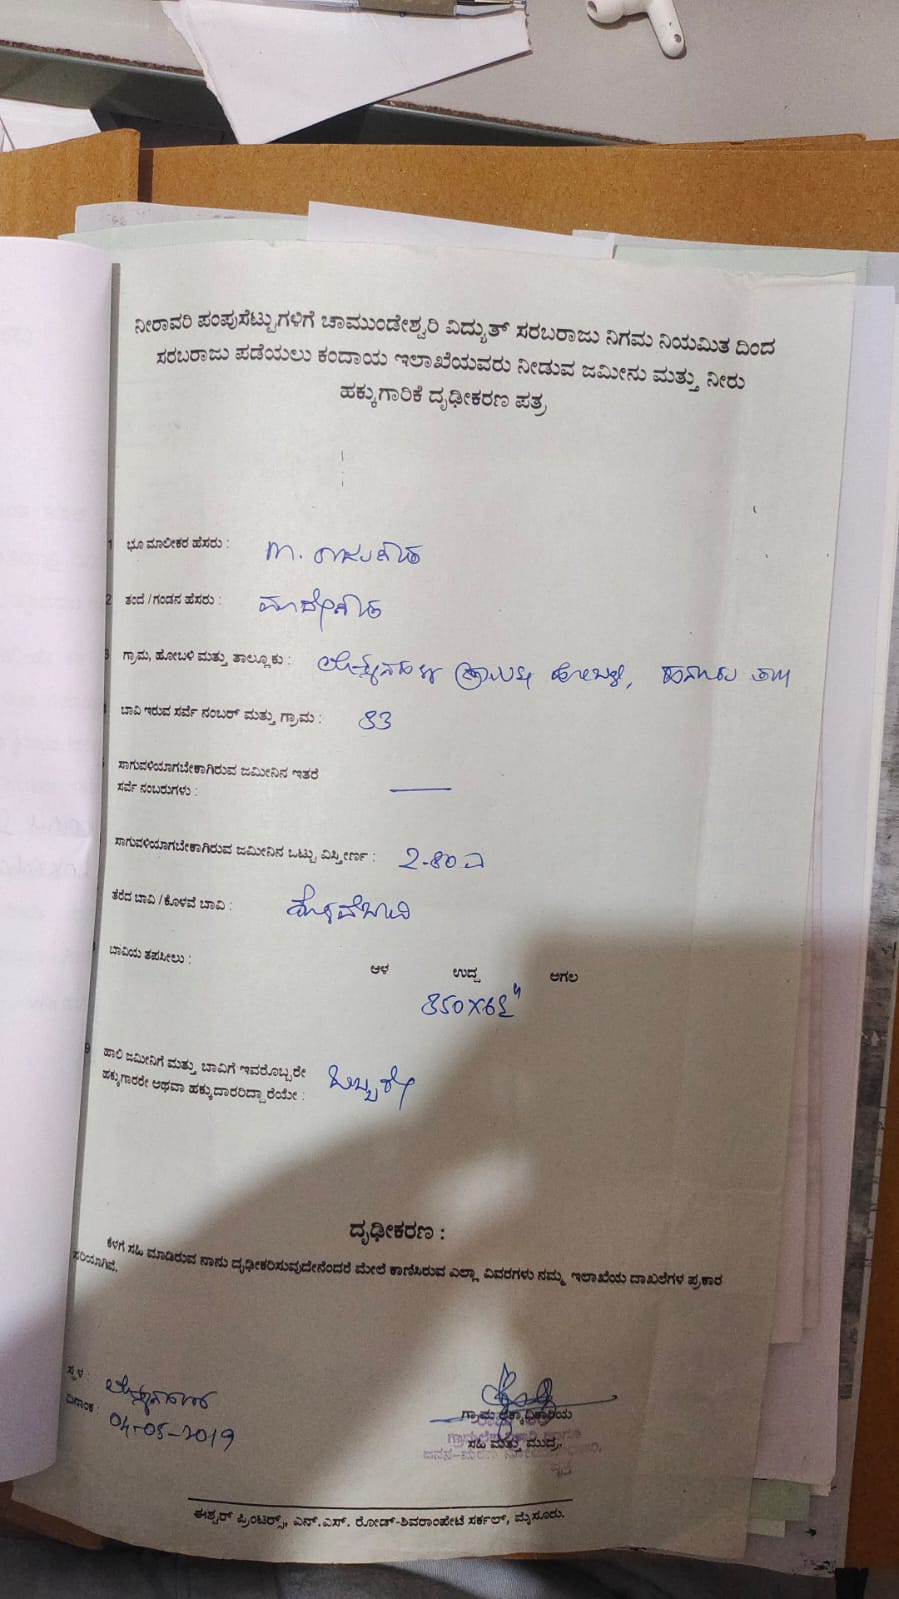 ನೀರಾವರಿ ಪಂಪುಸೆಟ್ಟುಗಳಿಗೆ ಚಾಮುಂಡೇಶ್ವರಿ ವಿದ್ಯುತ್ ಸರಬರಾಜು ನಿಗಮ ನಿಯಮಿತ ದಿಂದ
ಸರಬರಾಜು ಪಡೆಯಲು ಕಂದಾಯ ಇಲಾಖೆಯವರು ನೀಡುವ ಜಮೀನು ಮತ್ತು ನೀರು
ಹಕ್ಕುಗಾರಿಕೆ ದೃಢೀಕರಣ ಪತ್ರ
1 ಭೂ ಮಾಲೀಕರ ಹೆಸರು : M. ರಾಜುಗೌಡ
2 ತಂದೆ / ಗಂಡನ ಹೆಸರು : ಮಾದೇಗೌಡ
3 ಗ್ರಾಮ, ಹೋಬಳಿ ಮತ್ತು ತಾಲ್ಲೂಕು : ಹೋಬಳಿ,
ಬಾವಿ ಇರುವ ಸರ್ವೆ ನಂಬರ್ ಮತ್ತು ಗ್ರಾಮ : 83
ಸಾಗುವಳಿಯಾಗಬೇಕಾಗಿರುವ ಜಮೀನಿನ ಇತರೆ
ಸರ್ವೆ ನಂಬರುಗಳು :
ಸಾಗುವಳಿಯಾಗಬೇಕಾಗಿರುವ ಜಮೀನಿನ ಒಟ್ಟು ವಿಸ್ತೀರ್ಣ :
ತೆರೆದ ಬಾವಿ / ಕೊಳವೆ ಬಾವಿ : ಕೊಳವೆಬಾವಿ
ಬಾವಿಯ ತಪಸೀಲು :
ಆಳ ಉದ್ದ ಅಗಲ
9 ಹಾಲಿ ಜಮೀನಿಗೆ ಮತ್ತು ಬಾವಿಗೆ ಇವರೊಬ್ಬರೇ
ಹಕ್ಕುಗಾರರೇ ಅಥವಾ ಹಕ್ಕುದಾರರಿದ್ದಾರೆಯೇ : ಒಬ್ಬರೇ
ದೃಢೀಕರಣ :
ಕೆಳಗೆ ಸಹಿ ಮಾಡಿರುವ ನಾನು ದೃಢೀಕರಿಸುವುದೇನೆಂದರೆ ಮೇಲೆ ಕಾಣಿಸಿರುವ ಎಲ್ಲಾ ವಿವರಗಳು ನಮ್ಮ ಇಲಾಖೆಯ ದಾಖಲೆಗಳ ಪ್ರಕಾರ
ಸರಿಯಾಗಿವೆ.
ಸ್ಥಳ :
ದಿನಾಂಕ : 04-05-2019
ಗ್ರಾಮ ಲೆಕ್ಕಾಧಿಕಾರಿಯ
ಸಹಿ ಮತ್ತು ಮುದ್ರೆ.
ಈಶ್ವರ್ ಪ್ರಿಂಟರ್ಸ್, ಎನ್.ಎಸ್. ರೋಡ್-ಶಿವರಾಂಪೇಟೆ ಸರ್ಕಲ್, ಮೈಸೂರು.